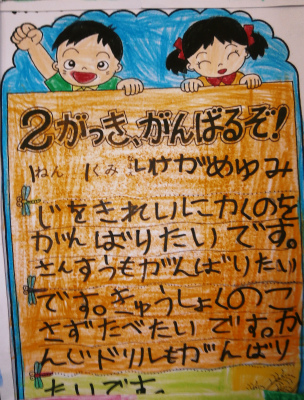 2がっき、がんばるぞ!
1ねん くみ いけがめゆみ
じをきれいにかくのを
がんばりたいです。
さんすうもがんばりたい
です。きゅうしょくのこ
さずたべたいです。か
んじドリルもがんばり
たいです。